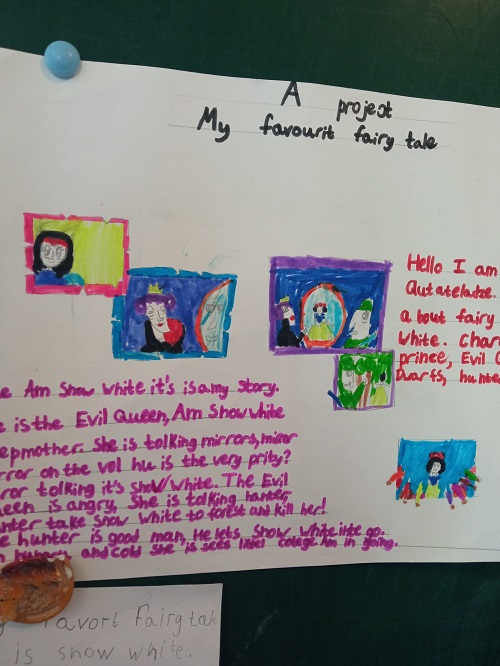 A project
My favourit fairy tale
Hello I am
a bout fairy
White. Char
prince, Evil
Dwarfs, hunte
e Am Show White it's is a my story.
e is the Evil Queen, Am Show White
epmother. She is tolking mirrors, miror
rror on the vol hu is the very prity?
ror tolking it's Show White. The Evil
ueen is angry. She is tolking hanter,
unter take Snow White to forest and kill her!
e hunter is good man, He lets Show White go.
hungry and cold she is sees littel cotege Am in going.
favort Fairy tale
is show white.